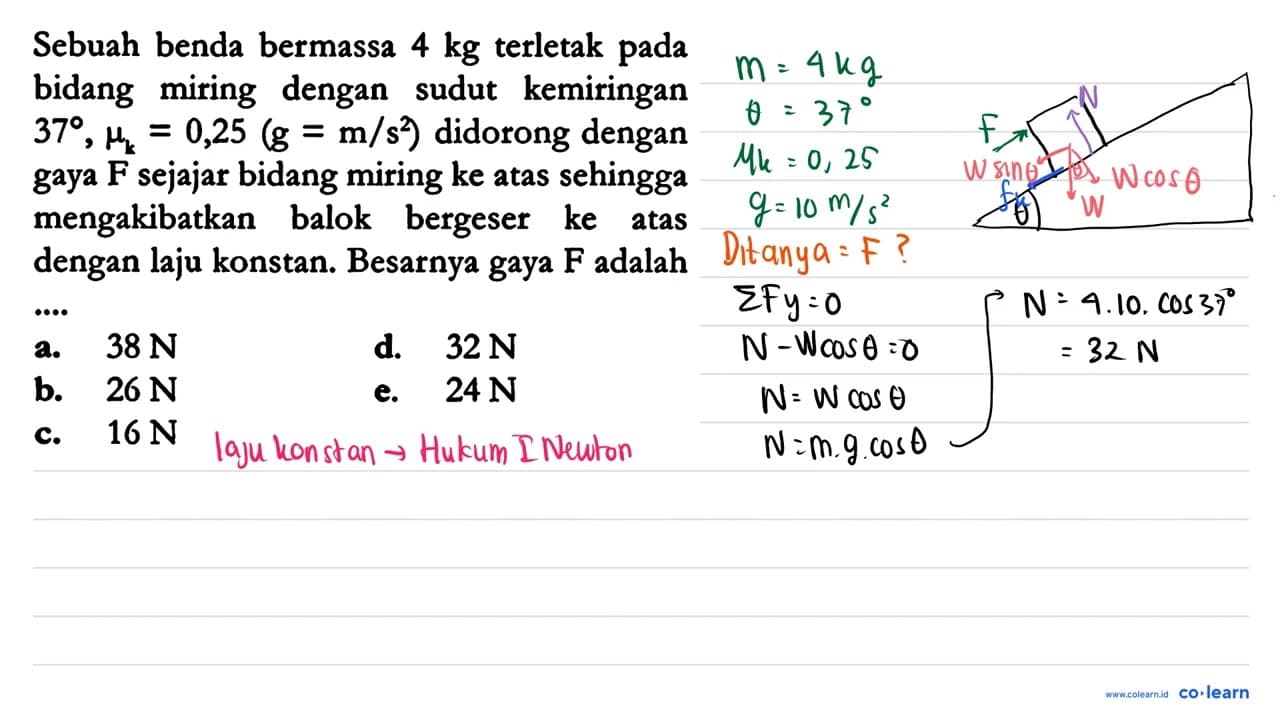 Sebuah benda bermassa 4 kg terletak pada
bidang miring dengan sudut kemiringan
37°, μk = 0,25 (g = m/s²) didorong dengan
gaya F sejajar bidang miring ke atas sehingga
mengakibatkan balok bergeser ke atas
dengan laju konstan. Besarnya gaya F adalah
....
a. 38 N d. 32 N
b. 26 N e. 24 N
c. 16 N
laju konstan → Hukum I Newton
m = 4 kg
θ = 37°
μk = 0,25
g = 10 m/s²
Ditanya = F ?
ΣFy = 0
N - W cos θ = 0
N = W cos θ
N = m.g.cos θ
N = 4.10. cos 37°
= 32 N
N
F
W sin θ
θ
W cos θ
fk
W
θ
www.colearn.id co·learn